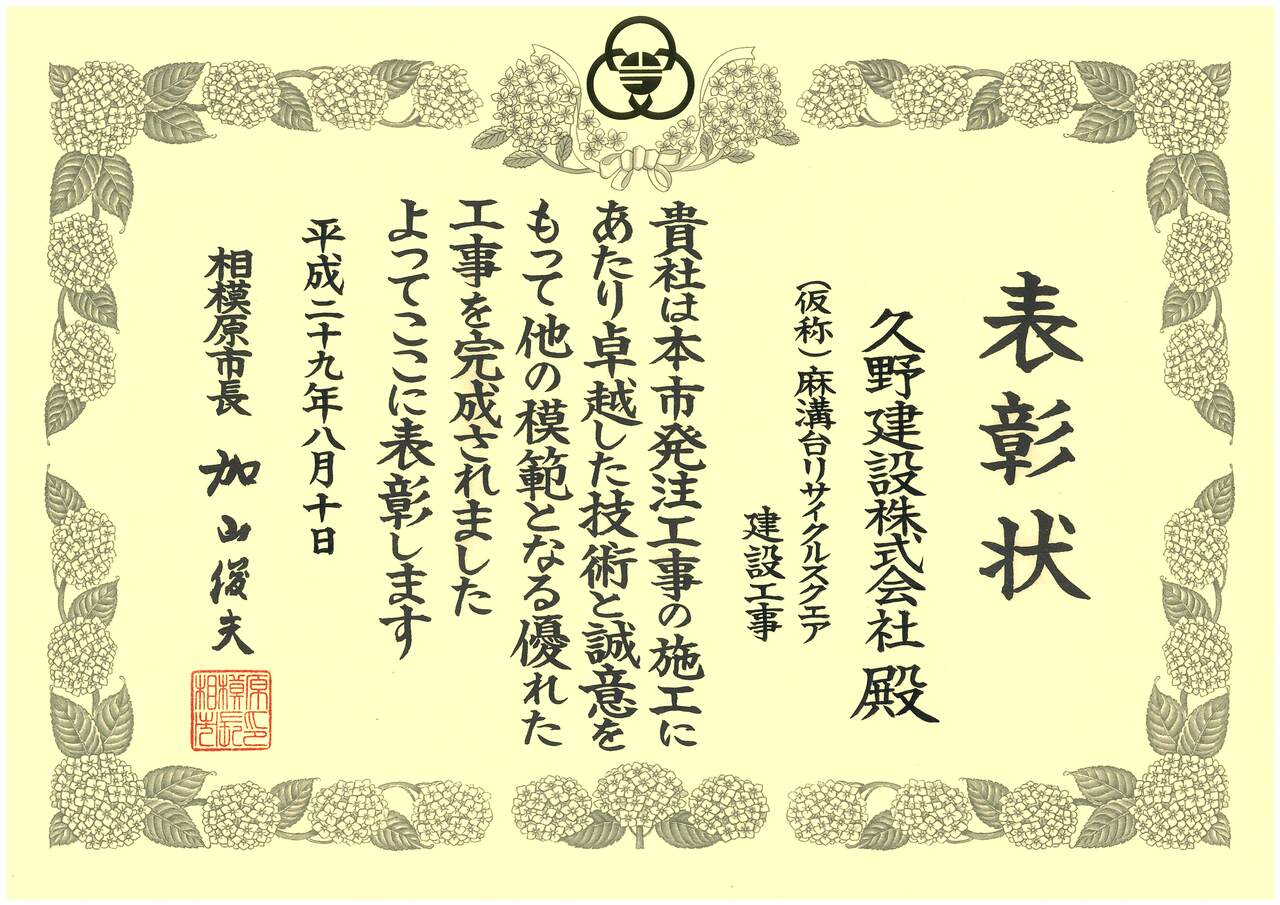 表彰状
久野建設株式会社 殿
（仮称）麻溝台リサイクルスクエア
建設工事
貴社は本市発注工事の施工に
あたり卓越した技術と誠意を
もって他の模範となる優れた
工事を完成されました
よってここに表彰します
平成二十九年八月十日
相模原市長 加山俊夫
相模原市長之印